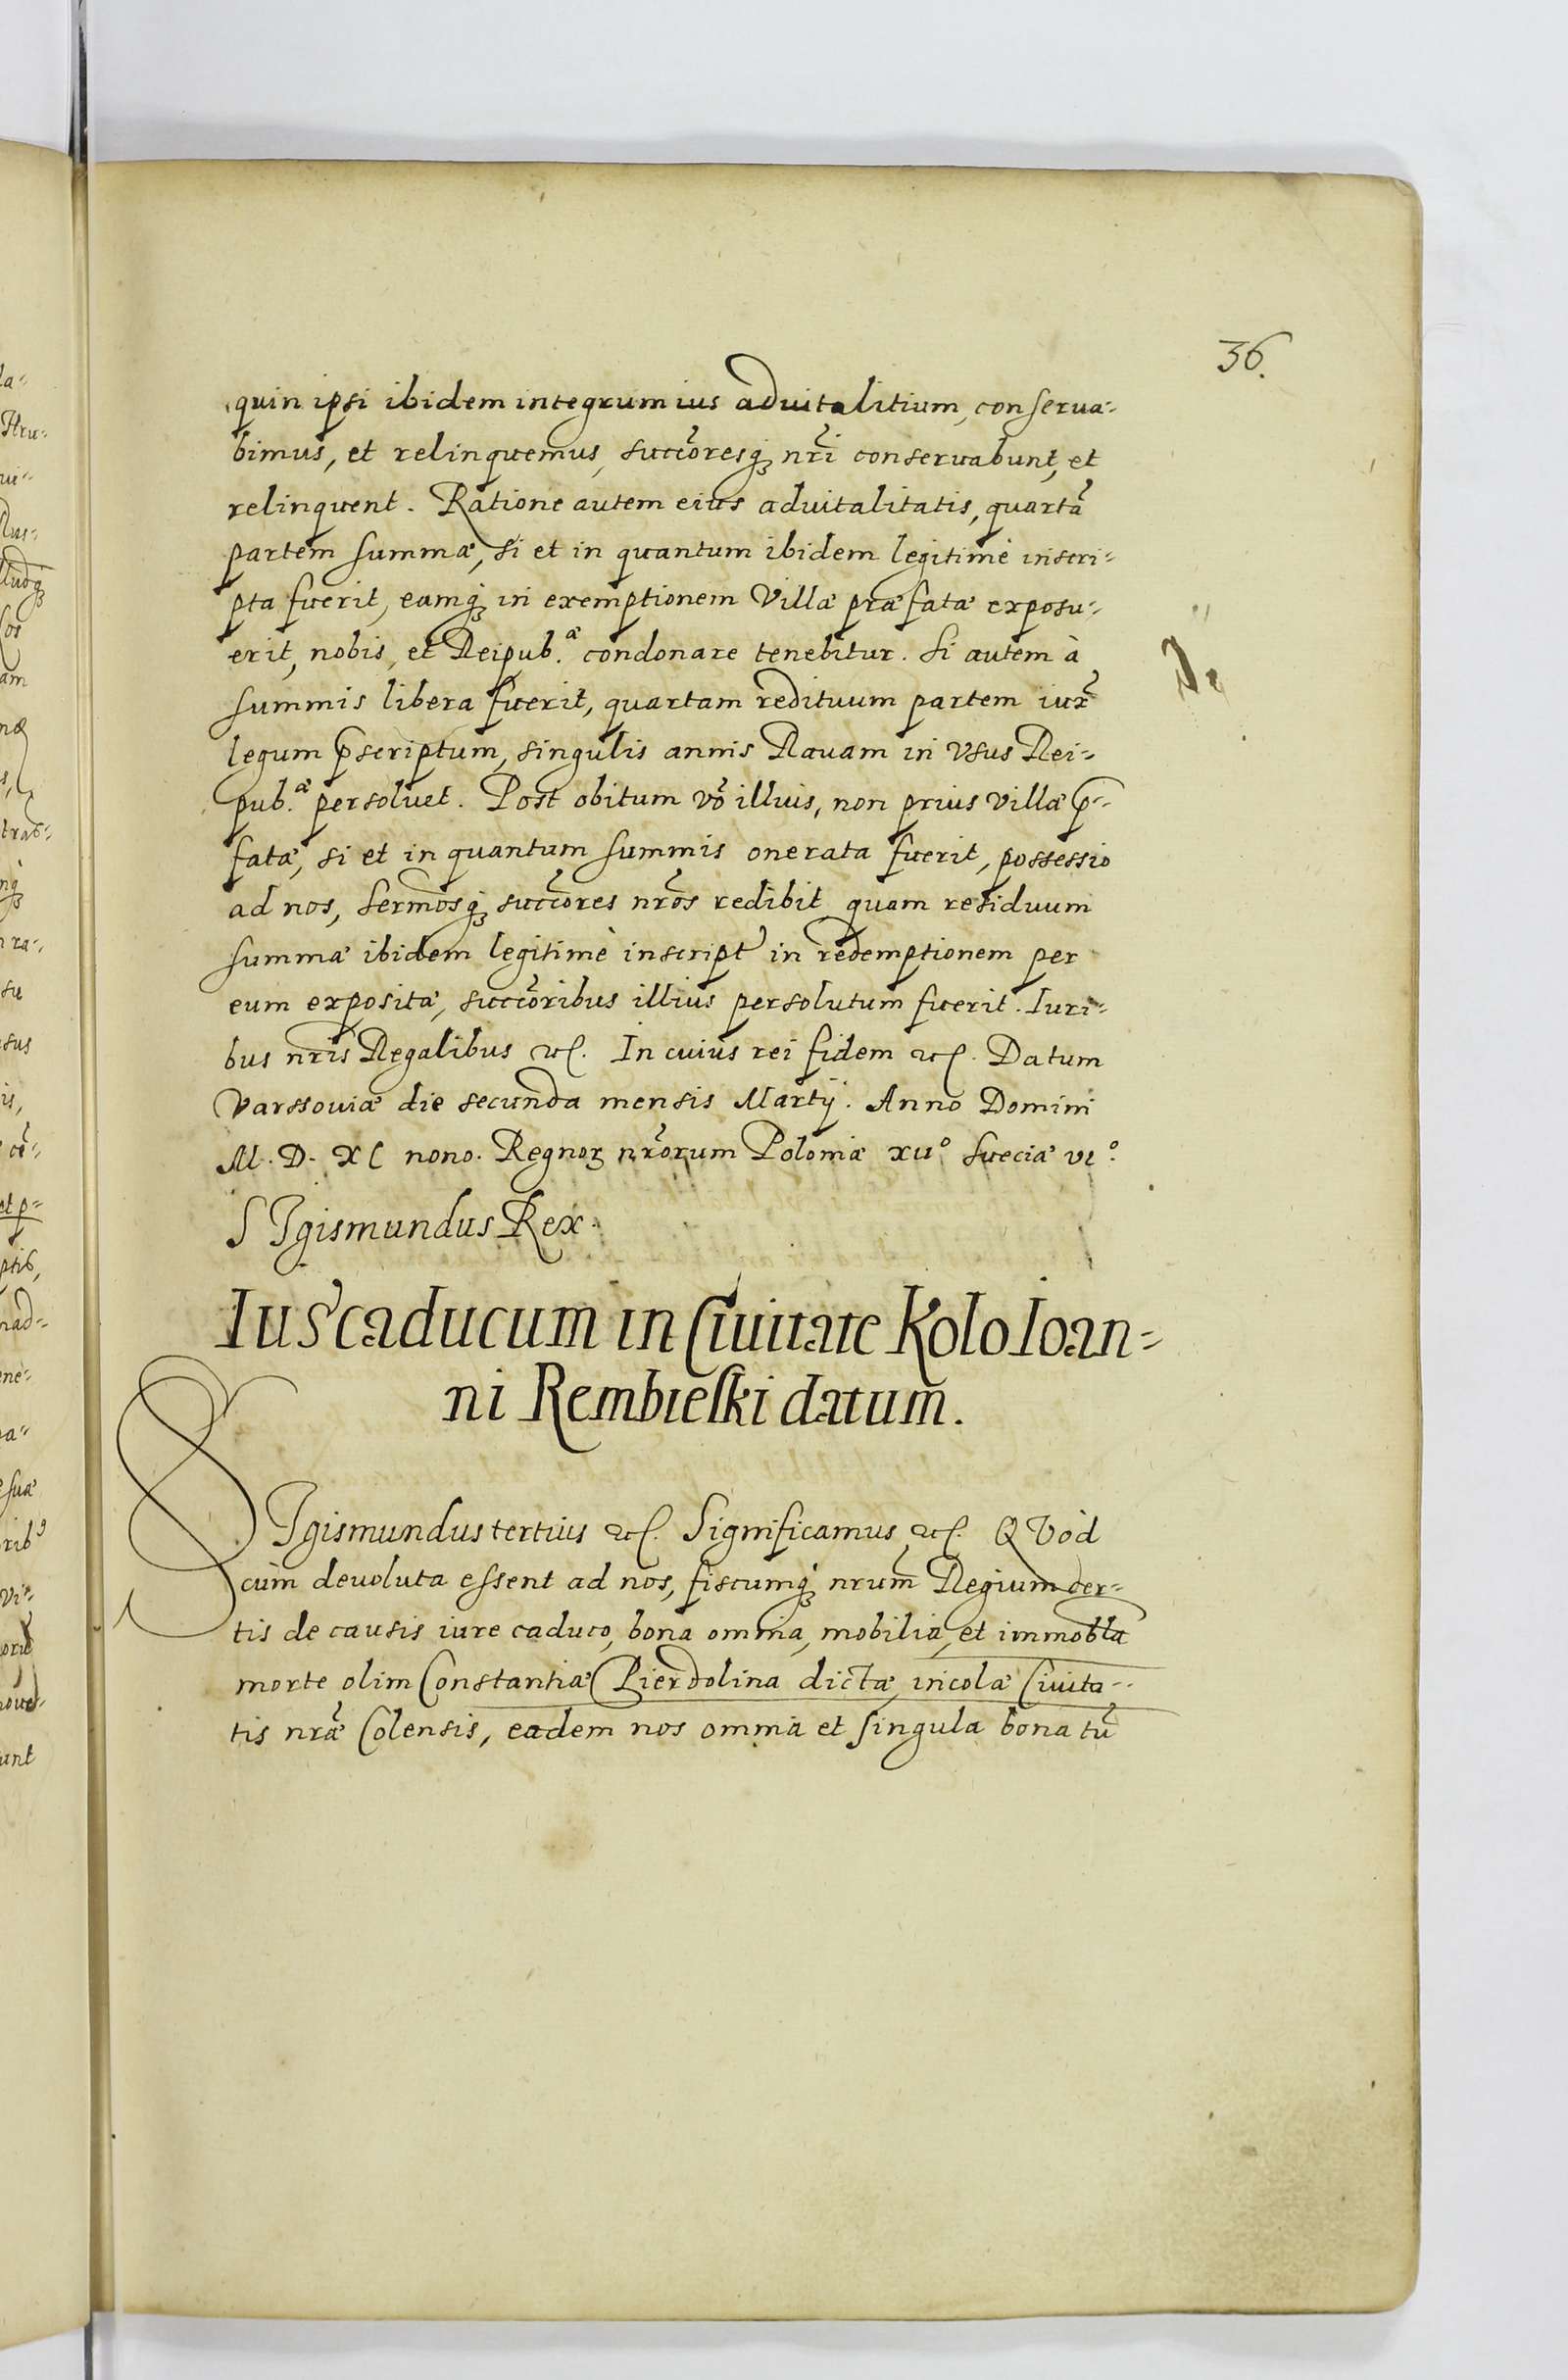 36.
quin ipsi ibidem integrum ius aduitalitium, conserua-
bimus, et relinquemus, succōresq₃ nr̄i conseruabunt, et
relinquent. Ratione autem eius aduitalitatis, quartā
partem summæ, si et in quantum ibidem legitimè inscri-
pta fuerit, eamq₃ in exemptionem Villæ præfatæ exposu-
erit, nobis, et Reipub.æ condonare tenebitur. Si autem à
summis libera fuerit, quartam redituum partem iux̄
legum p̄scriptum, singulis annis Rauam in vsus Rei-
pub.æ persoluet. Post obitum vō illius, non prius villæ p̄-
fatæ, si et in quantum summis onerata fuerit, possessio
ad nos, Sermōsq₃ succōres nr̄os redibit quam residuum
summæ ibidem legitimè inscript in redemptionem per
eum expositæ, succōribus illius persolutum fuerit. Iuri-
bus nr̄is Regalibus ꝛc. In cuius rei fidem ꝛc. Datum
Varssouiæ die secunda mensis Martij. Anno Domini
M. D. XC nono. Regnoꝝ nr̄orum Poloniæ xııº Sueciæ vıº.
SIgismundus Rex.
Ius caducum in Ciuitate Kolo Ioan-
ni Rembieſki datum.
SIgismundus tertius ꝛc. Significamus ꝛc. QVòd
cùm deuoluta essent ad nos, fiscumq₃ nrum̄ Regium cer-
tis de causis iure caduco, bona omnia, mobilia, et immobl̄a
morte olim Constantiæ Pierdolina dictæ, incolæ Ciuita-
tis nr̄æ Colensis, eadem nos omnia et singula bona tū